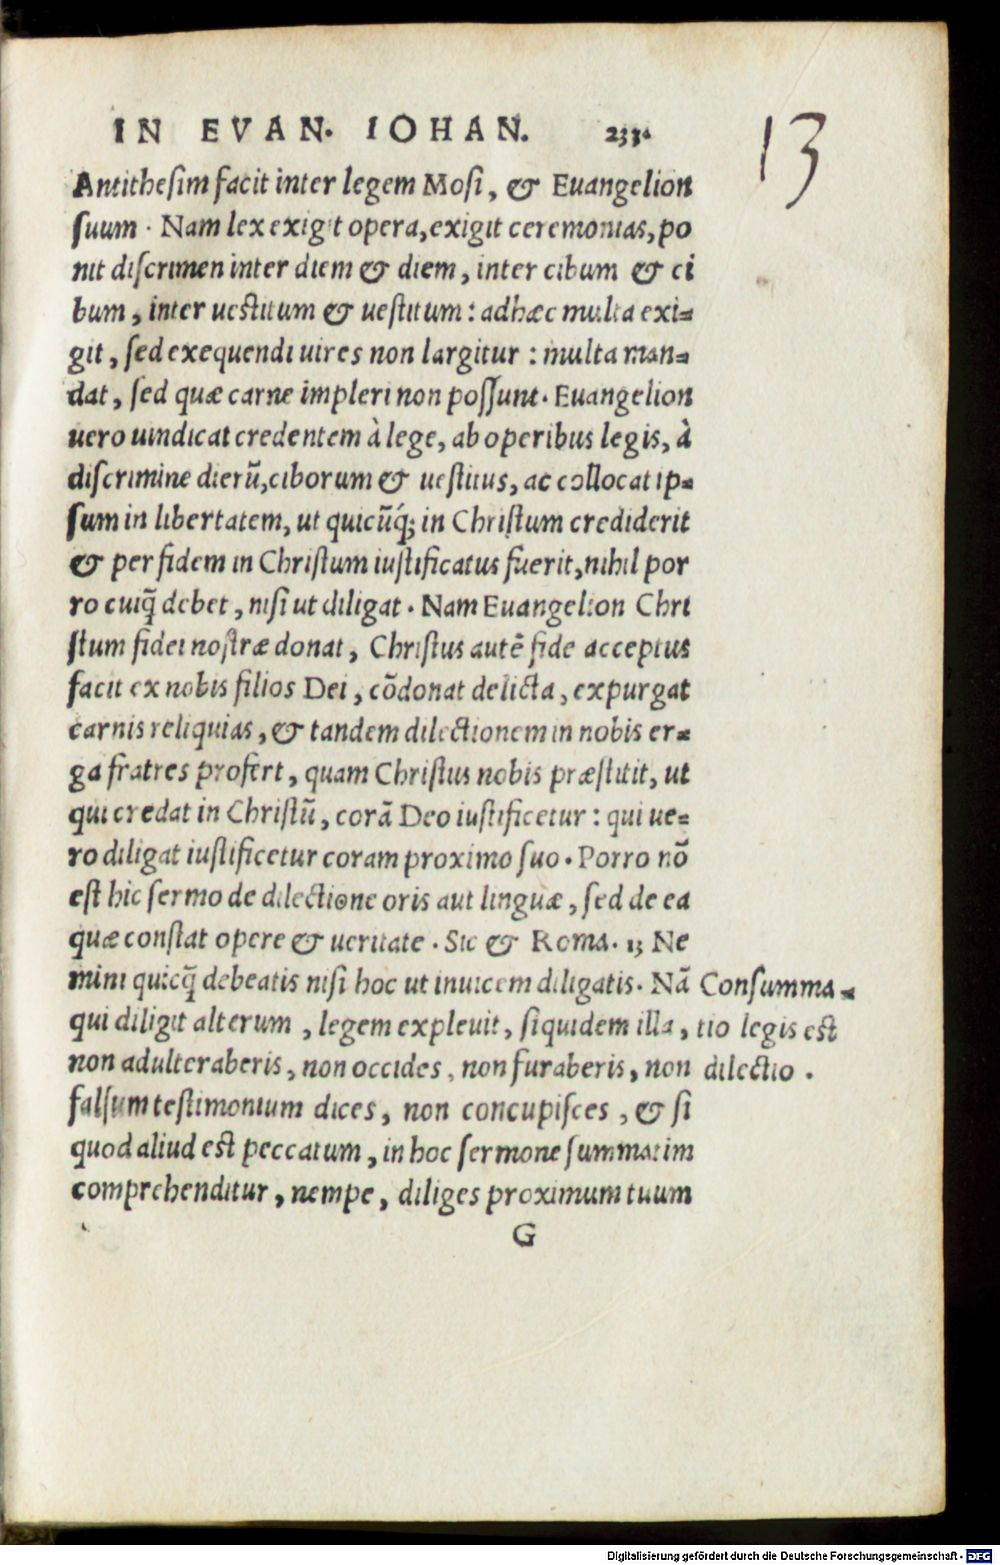 IN EVAN. IOHAN. 233.
13
Antithesim facit inter legem Mosi, & Euangelion
suum. Nam lex exigit opera, exigit ceremonias, po
nit discrimen inter diem & diem, inter cibum & ci
bum, inter uestitum & uestitum: adhæc multa exi-
git, sed exequendi uires non largitur: multa man-
dat, sed quæ carne impleri non possunt. Euangelion
uero uindicat credentem à lege, ab operibus legis, à
discrimine dierũ, ciborum & uestitus, ac collocat ip-
sum in libertatem, ut quicũq́; in Christum crediderit
& per fidem in Christum iustificatus fuerit, nihil por
ro cuiq̃ debet, nisi ut diligat. Nam Euangelion Chri
stum fidei nostræ donat, Christus autẽ fide acceptus
facit ex nobis filios Dei, cõdonat delicta, expurgat
carnis reliquias, & tandem dilectionem in nobis er-
ga fratres profert, quam Christus nobis præstitit, ut
qui credat in Christũ, corã Deo iustificetur: qui ue-
ro diligat iustificetur coram proximo suo. Porro nõ
est hic sermo de dilectione oris aut linguæ, sed de ea
quæ constat opere & ueritate. Sic & Roma. 13 Ne
mini quicq̃ debeatis nisi hoc ut inuicem diligatis. Nã
qui diligit alterum, legem expleuit, siquidem illa,
non adulteraberis, non occides, non furaberis, non
falsum testimonium dices, non concupisces, & si
quod aliud est peccatum, in hoc sermone summatim
comprehenditur, nempe, diliges proximum tuum
Consumma-
tio legis est
dilectio.
G
Digitalisierung gefördert durch die Deutsche Forschungsgemeinschaft - DFG